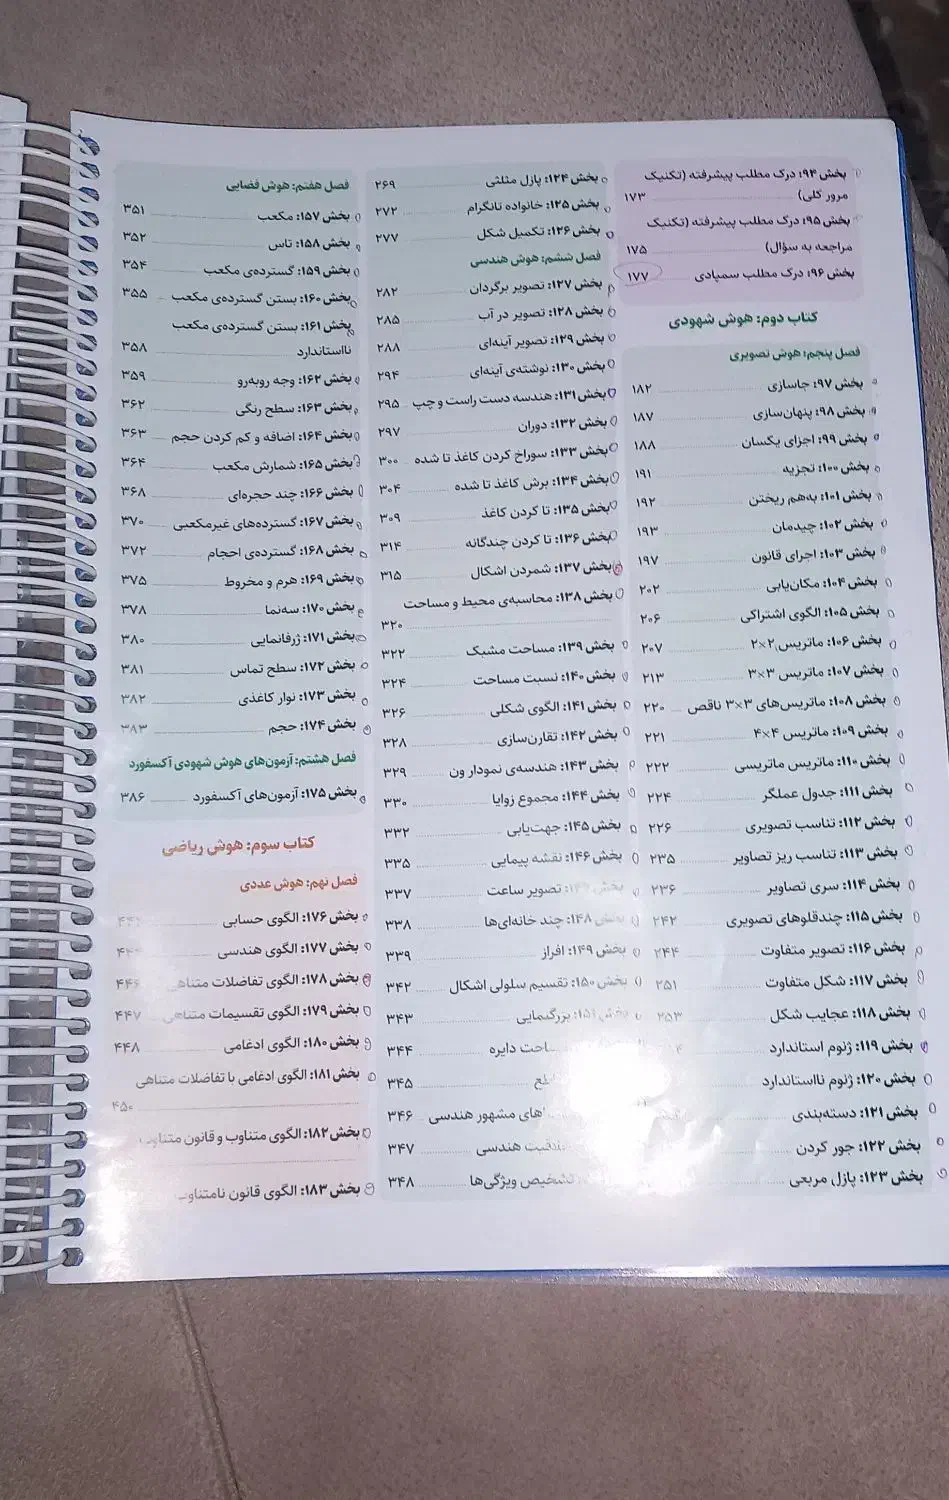 بخش ۹۴: درک مطلب پیشرفته (تکنیک
مرور کلی) ۱۷۳
بخش ۹۵: درک مطلب پیشرفته (تکنیک
مراجعه به سؤال) ۱۷۵
بخش ۹۶: درک مطلب سمپادی ۱۷۷
کتاب دوم: هوش شهودی
فصل پنجم: هوش تصویری
بخش ۹۷: جاسازی ۱۸۲
بخش ۹۸: پنهان‌سازی ۱۸۷
بخش ۹۹: اجزای یکسان ۱۸۸
بخش ۱۰۰: تجزیه ۱۹۱
بخش ۱۰۱: به‌هم ریختن ۱۹۲
بخش ۱۰۲: چیدمان ۱۹۳
بخش ۱۰۳: اجرای قانون ۱۹۷
بخش ۱۰۴: مکان‌یابی ۲۰۲
بخش ۱۰۵: الگوی اشتراکی ۲۰۶
بخش ۱۰۶: ماتریس ۲×۲ ۲۰۷
بخش ۱۰۷: ماتریس ۳×۳ ۲۱۳
بخش ۱۰۸: ماتریس‌های ۳×۳ ناقص ۲۲۰
بخش ۱۰۹: ماتریس ۴×۴ ۲۲۱
بخش ۱۱۰: ماتریس ماتریسی ۲۲۲
بخش ۱۱۱: جدول عملگر ۲۲۴
بخش ۱۱۲: تناسب تصویری ۲۲۶
بخش ۱۱۳: تناسب ریز تصاویر ۲۳۵
بخش ۱۱۴: سری تصاویر ۲۳۶
بخش ۱۱۵: چندقلوهای تصویری ۲۴۲
بخش ۱۱۶: تصویر متفاوت ۲۴۴
بخش ۱۱۷: شکل متفاوت ۲۵۱
بخش ۱۱۸: عجایب شکل ۲۵۳
بخش ۱۱۹: ژنوم استاندارد
بخش ۱۲۰: ژنوم نااستاندارد
بخش ۱۲۱: دسته‌بندی
بخش ۱۲۲: جور کردن
بخش ۱۲۳: پازل مربعی
بخش ۱۲۴: پازل مثلثی ۲۶۹
بخش ۱۲۵: خانواده تانگرام ۲۷۲
بخش ۱۲۶: تکمیل شکل ۲۷۷
فصل ششم: هوش هندسی
بخش ۱۲۷: تصویر برگردان ۲۸۲
بخش ۱۲۸: تصویر در آب ۲۸۵
بخش ۱۲۹: تصویر آینه‌ای ۲۸۸
بخش ۱۳۰: نوشته‌ی آینه‌ای ۲۹۴
بخش ۱۳۱: هندسه دست راست و چپ ۲۹۵
بخش ۱۳۲: دوران ۲۹۷
بخش ۱۳۳: سوراخ کردن کاغذ تا شده ۳۰۰
بخش ۱۳۴: برش کاغذ تا شده ۳۰۴
بخش ۱۳۵: تا کردن کاغذ ۳۰۹
بخش ۱۳۶: تا کردن چندگانه ۳۱۴
بخش ۱۳۷: شمردن اشکال ۳۱۵
بخش ۱۳۸: محاسبه‌ی محیط و مساحت
۳۲۰
بخش ۱۳۹: مساحت مشبک ۳۲۲
بخش ۱۴۰: نسبت مساحت ۳۲۴
بخش ۱۴۱: الگوی شکلی ۳۲۶
بخش ۱۴۲: تقارن‌سازی ۳۲۸
بخش ۱۴۳: هندسه‌ی نمودار ون ۳۲۹
بخش ۱۴۴: مجموع زوایا ۳۳۰
بخش ۱۴۵: جهت‌یابی ۳۳۲
بخش ۱۴۶: نقشه پیمایی ۳۳۵
بخش ۱۴۷: تصویر ساعت ۳۳۷
بخش ۱۴۸: چند خانه‌ای‌ها ۳۳۸
بخش ۱۴۹: افراز ۳۳۹
بخش ۱۵۰: تقسیم سلولی اشکال ۳۴۲
بخش ۱۵۱: بزرگنمایی ۳۴۳
دایره ۳۴۴
۳۴۵
های مشهور هندسی ۳۴۶
هندسی ۳۴۷
تشخیص ویژگی‌ها ۳۴۸
فصل هفتم: هوش فضایی
بخش ۱۵۷: مکعب ۳۵۱
بخش ۱۵۸: تاس ۳۵۲
بخش ۱۵۹: گسترده‌ی مکعب ۳۵۴
بخش ۱۶۰: بستن گسترده‌ی مکعب ۳۵۵
بخش ۱۶۱: بستن گسترده‌ی مکعب
نااستاندارد ۳۵۸
بخش ۱۶۲: وجه روبه‌رو ۳۵۹
بخش ۱۶۳: سطح رنگی ۳۶۲
بخش ۱۶۴: اضافه و کم کردن حجم ۳۶۳
بخش ۱۶۵: شمارش مکعب ۳۶۴
بخش ۱۶۶: چند حجره‌ای ۳۶۸
بخش ۱۶۷: گسترده‌های غیرمکعبی ۳۷۰
بخش ۱۶۸: گسترده‌ی احجام ۳۷۲
بخش ۱۶۹: هرم و مخروط ۳۷۵
بخش ۱۷۰: سه‌نما ۳۷۸
بخش ۱۷۱: ژرفانمایی ۳۸۰
بخش ۱۷۲: سطح تماس ۳۸۱
بخش ۱۷۳: نوار کاغذی ۳۸۲
بخش ۱۷۴: حجم ۳۸۳
فصل هشتم: آزمون‌های هوش شهودی آکسفورد
بخش ۱۷۵: آزمون‌های آکسفورد ۳۸۶
کتاب سوم: هوش ریاضی
فصل نهم: هوش عددی
بخش ۱۷۶: الگوی حسابی
بخش ۱۷۷: الگوی هندسی
بخش ۱۷۸: الگوی تفاضلات متناهی ۴۴۶
بخش ۱۷۹: الگوی تقسیمات متناهی ۴۴۷
بخش ۱۸۰: الگوی ادغامی ۴۴۸
بخش ۱۸۱: الگوی ادغامی با تفاضلات متناهی
۴۵۰
بخش ۱۸۲: الگوی متناوب و قانون متناوب
بخش ۱۸۳: الگوی قانون نامتناوب